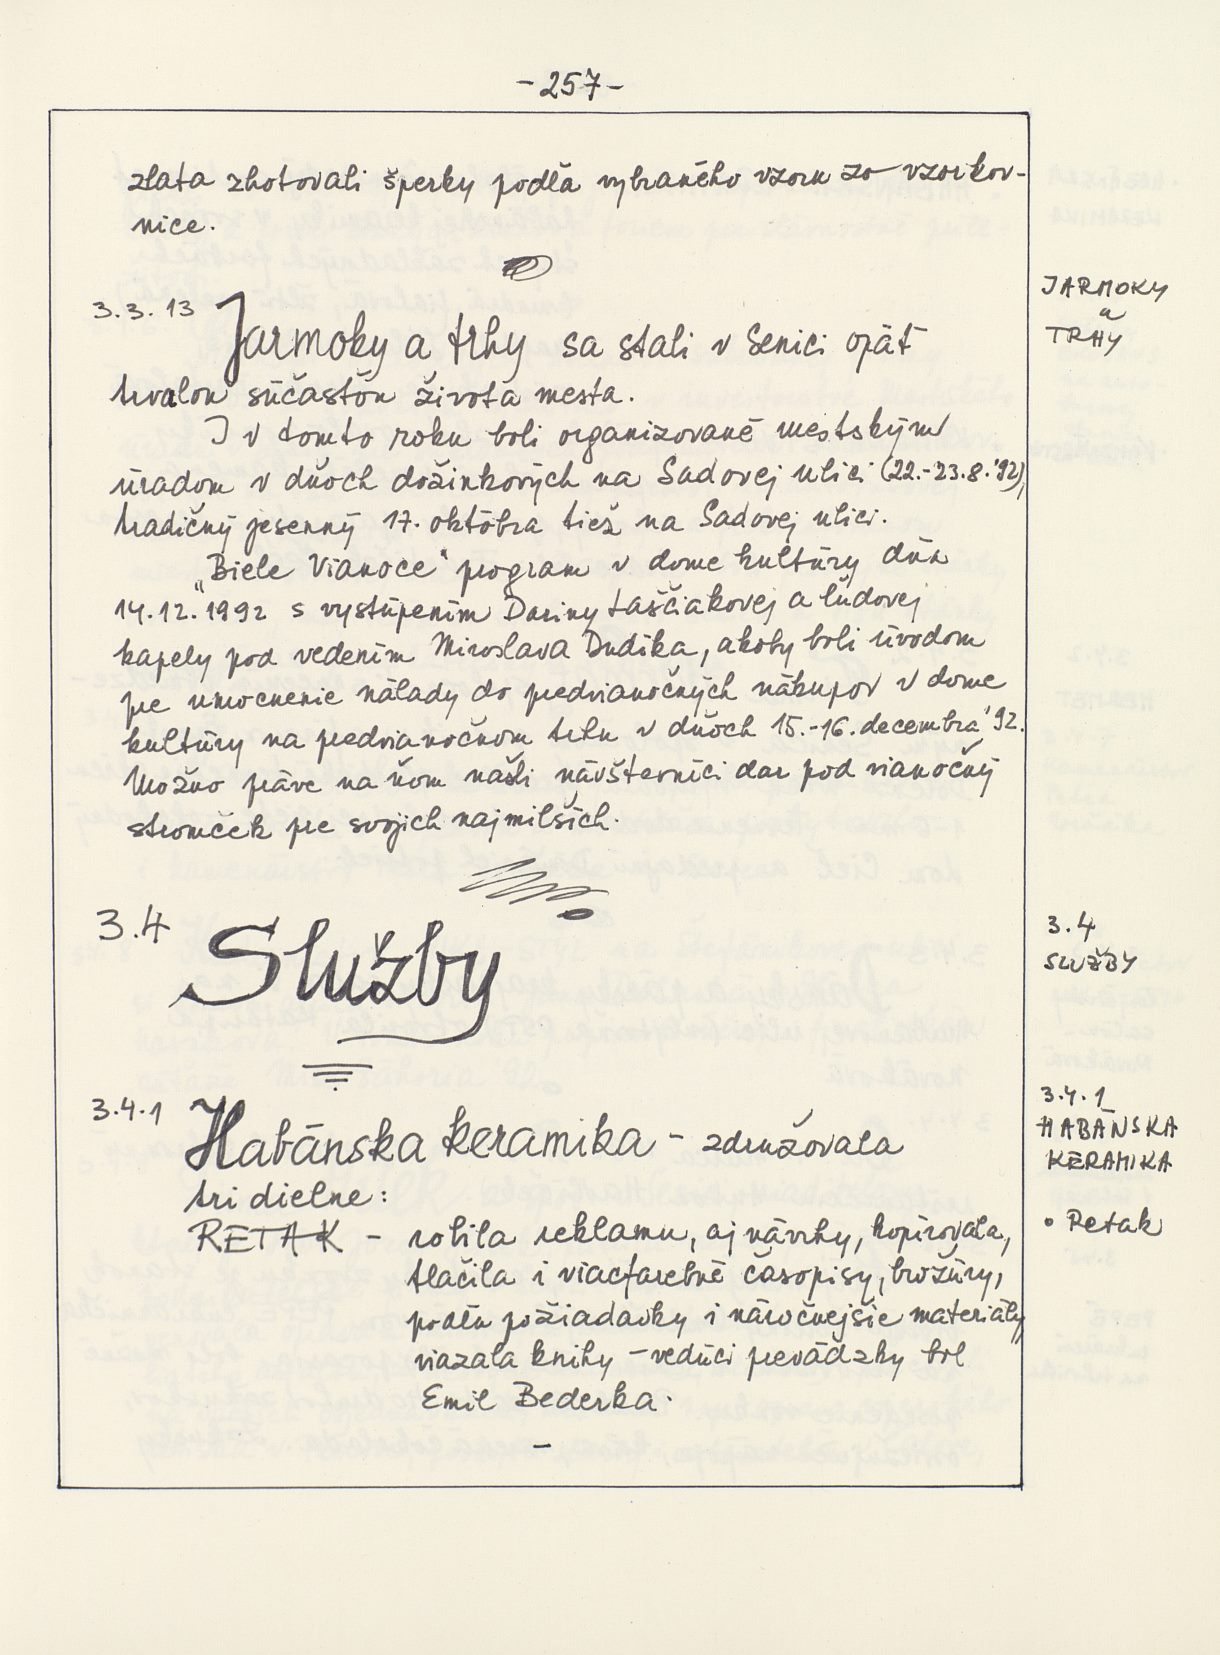 -257-
zlata zhotovali šperky podľa vybraného vzoru zo vzorkov-
nice.
JARMOKY
a
TRHY
3.3.13 Jarmoky a trhy sa stali v Senici opäť
trvalou súčasťou života mesta.
I v tomto roku boli organizované mestským
úradom v dňoch dožinkových na Sadovej ulici (22.-23.8.'92),
tradičný jesenný 17. októbra tiež na Sadovej ulici.
„Biele Vianoce“ program v dome kultúry dňa
14.12.1992 s vystúpením Dariny Laščiakovej a ľudovej
kapely pod vedením Miroslava Dudíka, akoby boli úvodom
pre umocnenie nálady do predvianočných nákupov v dome
kultúry na predvianočnom trhu v dňoch 15.-16. decembra '92.
Možno práve na ňom našli návštevníci dar pod vianočný
stromček pre svojich najmilších.
3.4 Služby
3.4
SLUŽBY
3.4.1 Habánska keramika - združovala
tri dielne:
3.4.1
HABÁNSKA
KERAMIKA
RETAK - robila reklamu, aj návrhy, kopírovala,
• Retak
tlačila i viacfarebné časopisy, brožúry,
podľa požiadavky i náročnejšie materiály
viazala knihy - vedúci prevádzky bol
Emil Bederka.
-